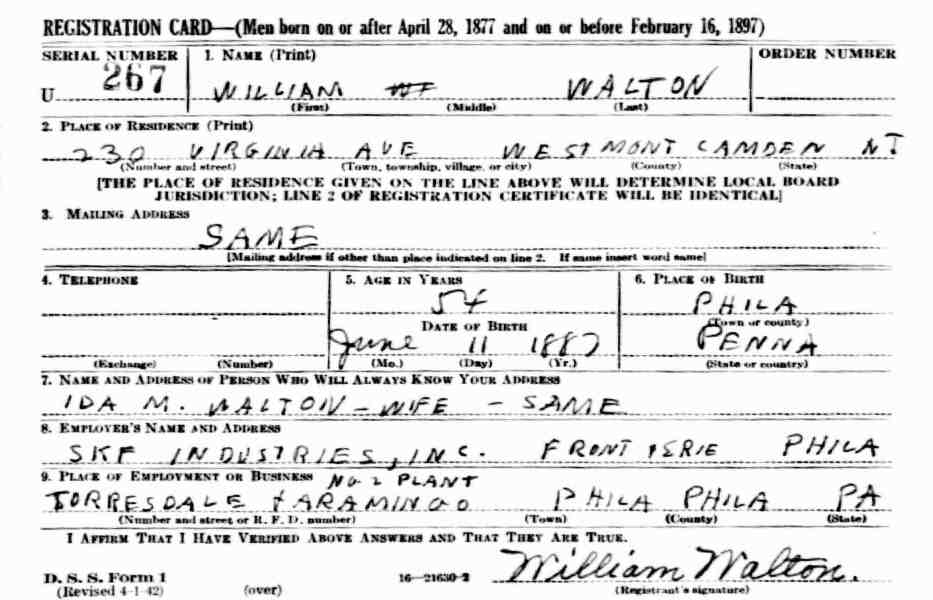 REGISTRATION CARD—(Men born on or after April 28, 1877 and on or before February 16, 1897)
SERIAL NUMBER 1. NAME (Print) ORDER NUMBER
U 267 WILLIAM WALTON
(First) (Middle) (Last)
2. PLACE OF RESIDENCE (Print)
230 VIRGINIA AVE WESTMONT CAMDEN NJ
(Number and street) (Town, township, village, or city) (County) (State)
[THE PLACE OF RESIDENCE GIVEN ON THE LINE ABOVE WILL DETERMINE LOCAL BOARD
JURISDICTION; LINE 2 OF REGISTRATION CERTIFICATE WILL BE IDENTICAL]
3. MAILING ADDRESS
SAME
[Mailing address if other than place indicated on line 2. If same insert word same]
4. TELEPHONE 5. AGE IN YEARS 6. PLACE OF BIRTH
54 PHILA
DATE OF BIRTH (Town or county)
June 11 1887 PENNA
(Exchange) (Number) (Mo.) (Day) (Yr.) (State or country)
7. NAME AND ADDRESS OF PERSON WHO WILL ALWAYS KNOW YOUR ADDRESS
IDA M. WALTON - WIFE - SAME
8. EMPLOYER'S NAME AND ADDRESS
SKF INDUSTRIES, INC. FRONT & ERIE PHILA
9. PLACE OF EMPLOYMENT OR BUSINESS NO 2 PLANT
TORRESDALE & ARAMINGO PHILA PHILA PA
(Number and street or R. F. D. number) (Town) (County) (State)
I AFFIRM THAT I HAVE VERIFIED ABOVE ANSWERS AND THAT THEY ARE TRUE.
D. S. S. Form 1 16—21630-2 William Walton.
(Revised 4-1-42) (over) (Registrant's signature)